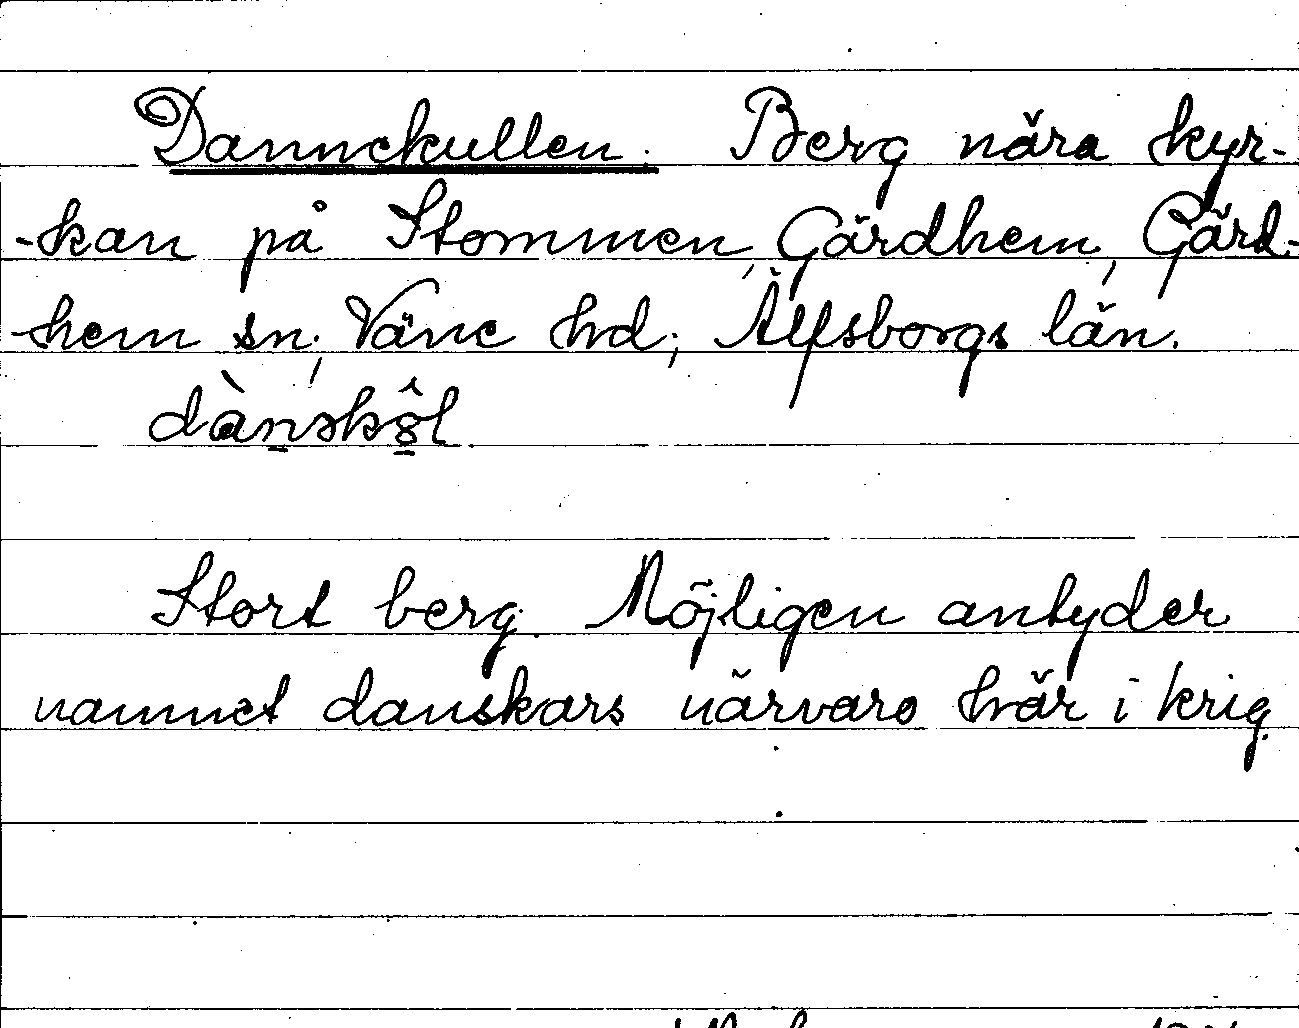 Dannekullen. Berg nära kyr-
-kan på Stommen, Gärdhem, Gärd-
-hem sn, Väne hd; Älfsborgs län.
Stort berg. Möjligen antyder
namnet danskars närvaro här i krig.